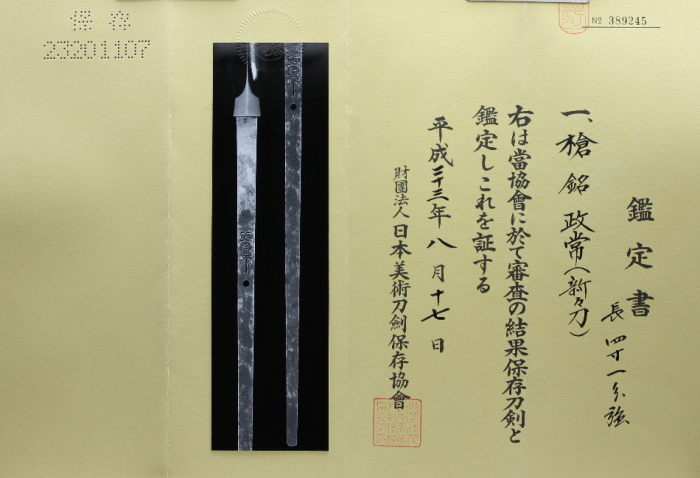 № 389245
鑑定書
長四寸一分強
一、槍 銘 政常(新々刀)
右は當協會に於て審査の結果保存刀剣と
鑑定しこれを証する
平成二十三年八月十七日
財團法人日本美術刀劍保存協會
保存
23201107